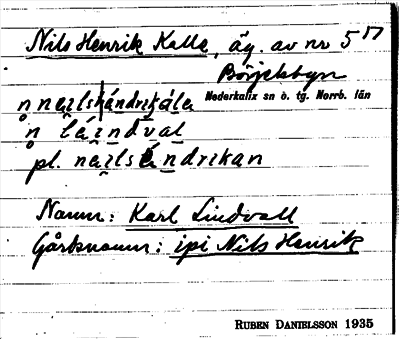 Nils Henrik Kalle, äg. av nr 5¹⁷
Börjelsbyn
Nederkalix sn ö. tg. Norrb. län
n nei̯lshándrikále
n lái̯ndval
pl. nai̯lsándrikan
Namn: Karl Lindvall
Gårdsnamn: ipi Nils Henrik
RUBEN DANIELSSON 1935